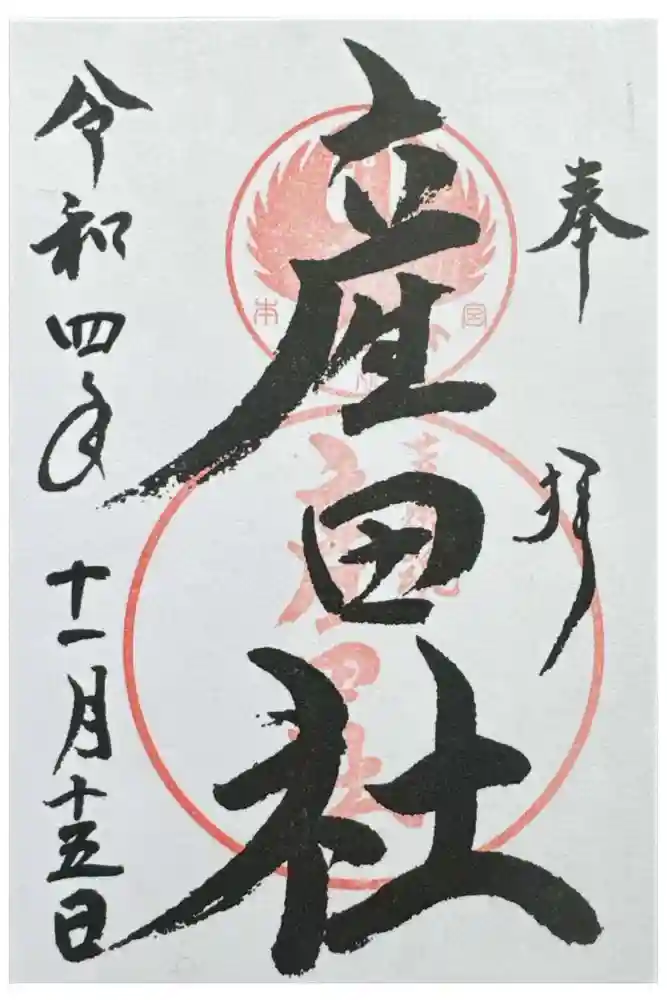 奉拝
産田社
令和四年十一月十五日